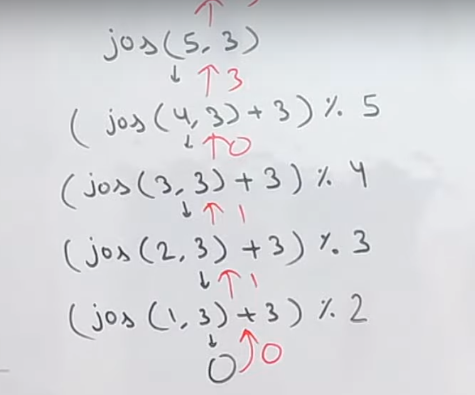 jos(5, 3)
↓ ↑ 3
( jos(4, 3) + 3 ) % 5
↓ ↑ 0
(jos(3, 3) + 3 ) % 4
↓ ↑ 1
(jos(2, 3) + 3) % 3
↓ ↑ 1
(jos (1, 3) + 3) % 2
↓ ↑
0 0